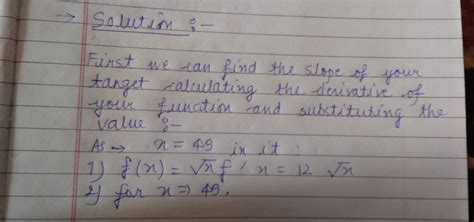 → Solution :-
First we can find the slope of your
tanget calculating the derivative of
your function and substituting the
value :-
As → x = 49 in it :
1) f(x) = √x f' x = 12 √x
2) for x => 49.